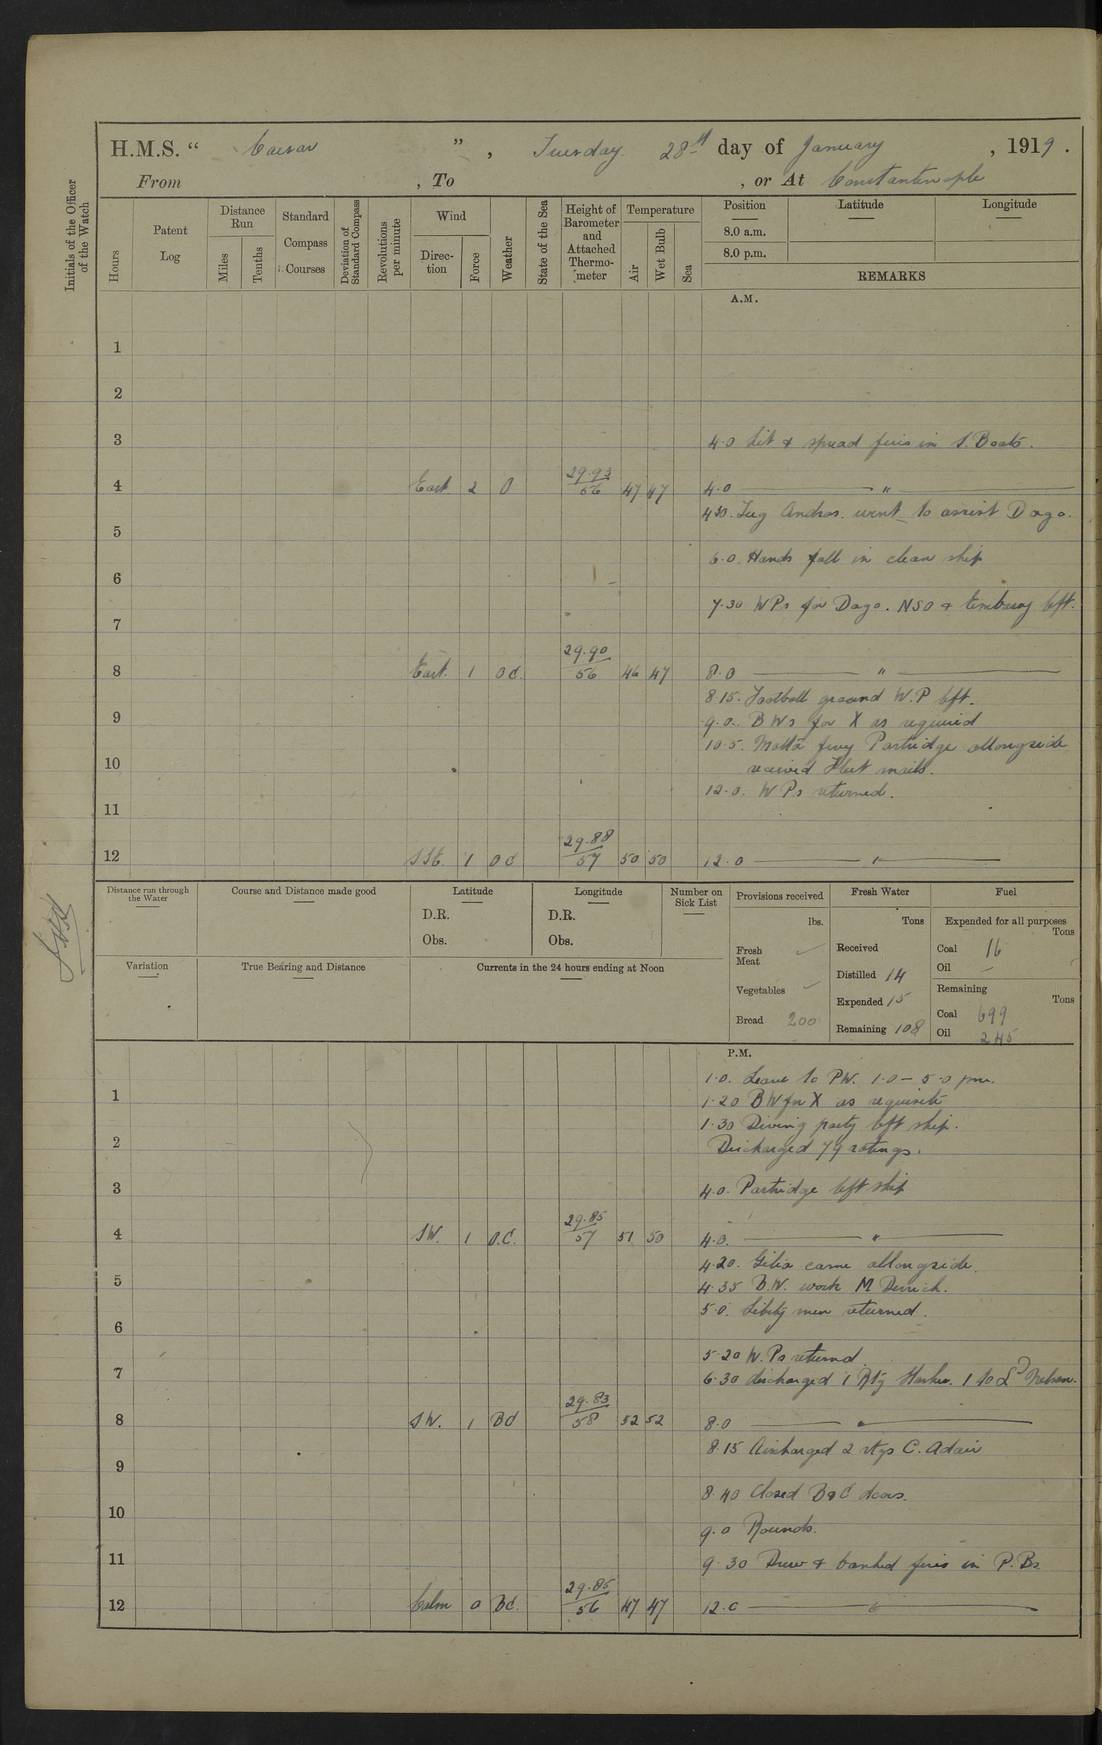 H.M.S. “ Caesar ” , Tuesday 28th day of January , 1919 .
From , To , or At Constantinople
Initials of the Officer of the Watch
Hours
Patent Log
Distance Run
Miles
Tenths
Standard Compass Courses
Deviation of Standard Compass
Revolutions per minute
Wind
Direction
Force
Weather
State of the Sea
Height of Barometer and Attached Thermometer
Temperature
Air
Wet Bulb
Sea
Position
8.0 a.m.
8.0 p.m.
Latitude
Longitude
REMARKS
A.M.
1
2
3
4.0 Lit & spread fires in S. Boats.
4 East 2 O 29.93/56 47 47 4.0 — " —
4.30. Tug Andros went to assist Dago.
5
6.0. Hands fall in clean ship
6
7.30 WPs for Dago. NSO & left.
7
8 East. 1 OC. 29.90/56 46 47 8.0 — " —
8.15. Football ground W.P left.
9 9.0. B Ws for X as required
10.5. Malta ferry Partridge allongside
10 received Fleet mails.
12.0. W Ps returned.
11
12 SSE. 1 OC 29.88/57 50 50 12.0 — " —
Distance run through the Water
Course and Distance made good
Latitude
D.R.
Obs.
Longitude
D.R.
Obs.
Number on Sick List
Provisions received
lbs.
Fresh Meat
Vegetables
Bread 200
Fresh Water
Tons
Received
Distilled 14
Expended 15
Remaining 108
Fuel
Expended for all purposes
Tons
Coal 16
Oil –
Remaining
Tons
Coal 699
Oil 245
Variation
True Bearing and Distance
Currents in the 24 hours ending at Noon
P.M.
1.0. Leave to PW. 1.0 – 5.0 pm.
1 1.20 BW for X as requisite
1.30 Diving party left ship.
2 Discharged 79 ratings.
3 4.0. Partridge left ship
4 SW. 1 O.C. 29.85/57 51 50 4.0. — " —
4.20. came allongside.
5 4.35 B.W. work M Derrick.
5.0. Liberty men returned.
6
5.20 W. Ps returnd
7 6.30 discharged 1 Rtg 1 to Ld Nelson.
8 SW. 1 BC 29.83/58 52 52 8.0 — " —
8.15 discharged 2 rtgs C. Adair
9
8.40 Closed B & C doors.
10
9.0 Rounds.
11
9.30 Drew & banked fires in P. Bs
12 Calm 0 BC. 29.85/56 47 47 12.0 — " —